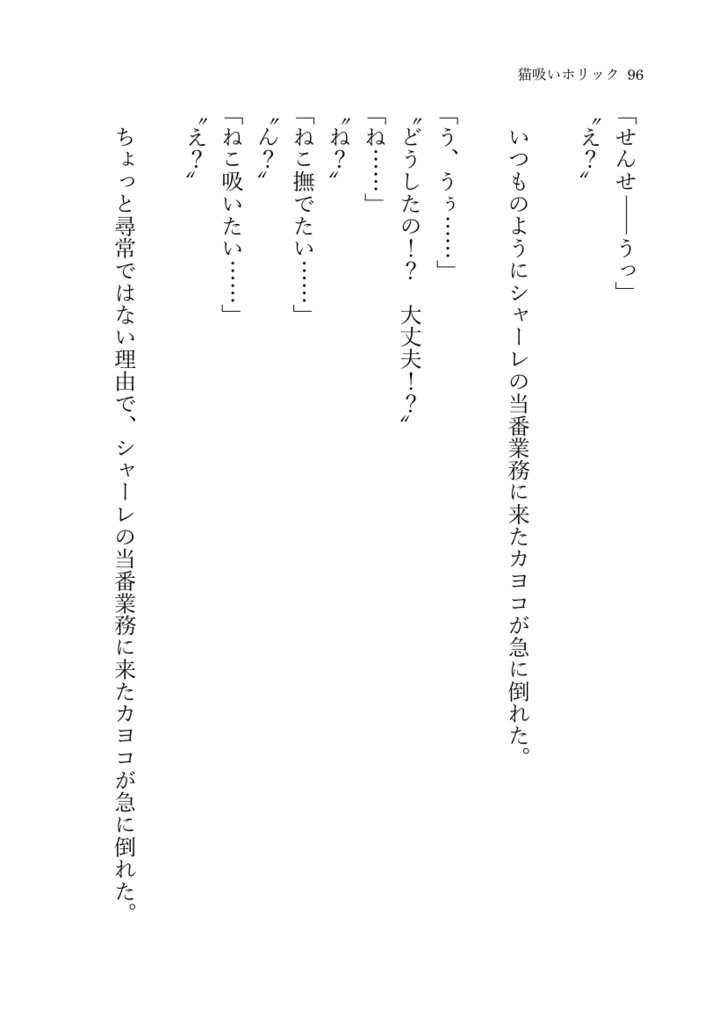 猫吸いホリック 96
「せんせ――うっ」
〝え？〟
いつものようにシャーレの当番業務に来たカヨコが急に倒れた。
「う、うぅ……」
〝どうしたの！？　大丈夫！？〟
「ね……」
〝ね？〟
「ねこ撫でたい……」
〝ん？〟
「ねこ吸いたい……」
〝え？〟
ちょっと尋常ではない理由で、シャーレの当番業務に来たカヨコが急に倒れた。